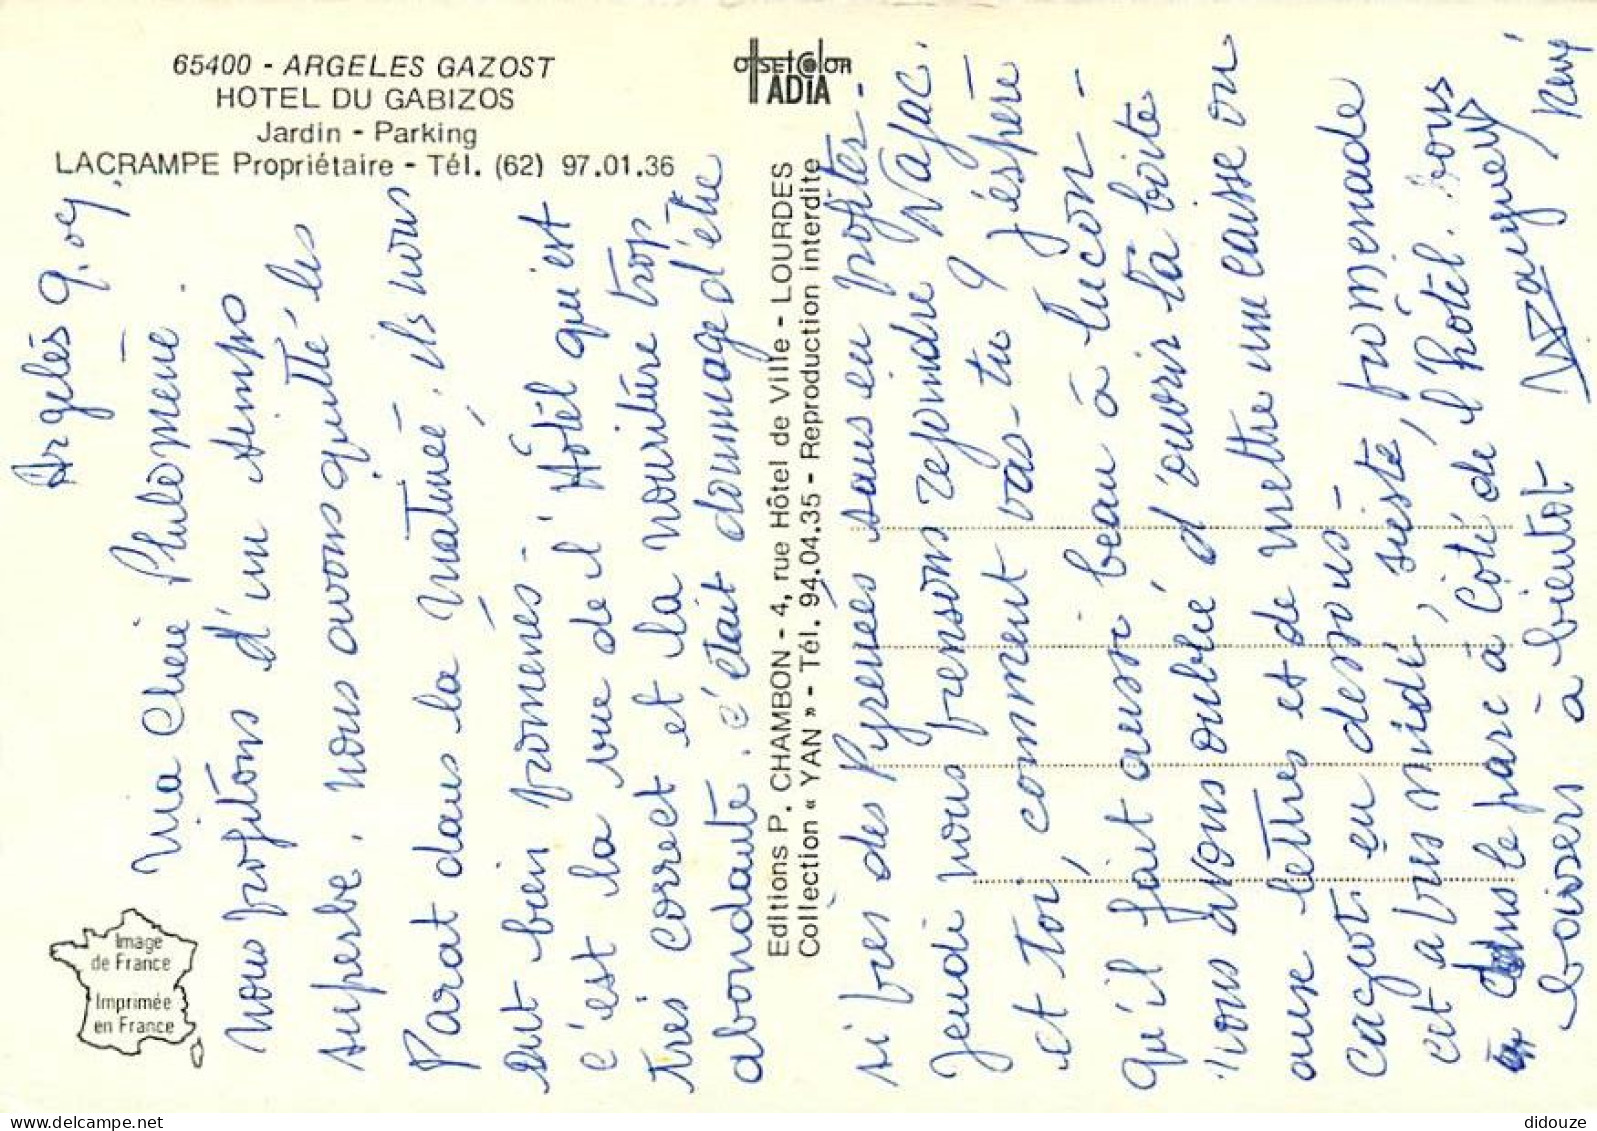 65400 - ARGELES GAZOST
HOTEL DU GABIZOS
Jardin - Parking
LACRAMPE Propriétaire - Tél. (62) 97.01.36
OFFSET COLOR
IADIA
Image
de France
Imprimée
en France
Editions P. CHAMBON - 4, rue Hôtel de Ville - LOURDES
Collection « YAN » - Tél. 94.04.35 - Reproduction interdite
Argelès 9.09.
Ma Chère Philomène.
Nous profitons d'un temps
superbe. nous avons quitté les
Parat dans la matinée. ils nous
ont bien promenés -
c'est la vue de l'Hôtel qui est
très correct et la nouriture trop
abondante. c'était dommage d'être
si près des Pyrenées sans en profiter -
Jeudi nous pensons rejoindre Najac.
et toi, comment vas-tu ? j'espère
qu'il fait aussi beau à Luçon -
nous avons oublié d'ouvrir la boite
aux lettres et de mettre une caisse ou
cageot en dessous -
cet après midi, sieste, promenade
dans le parc à coté de l'hôtel. nous
baisers à bientot
didouze